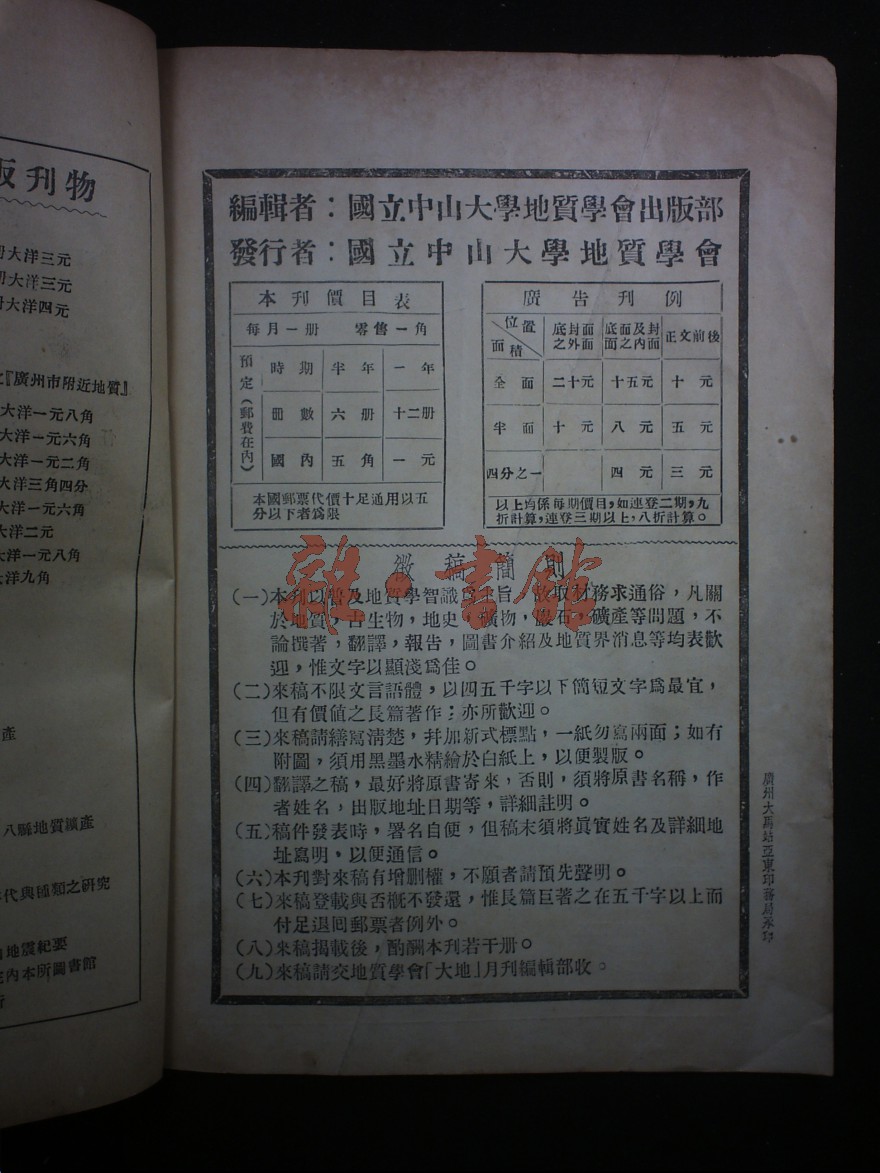 編輯者：國立中山大學地質學會出版部
發行者：國立中山大學地質學會
本刊價目表
每月一册　零售一角
預定（郵費在內）
時期　半年　一年
冊數　六册　十二册
國內　五角　一元
本國郵票代價十足通用以五
分以下者爲限
廣告刊例
位置　面積　底封面之外面　底面及封面之內面　正文前後
全面　二十元　十五元　十元
半面　十元　八元　五元
四分之一　四元　三元
以上均係每期價目，如連登二期，九
折計算，連登三期以上，八折計算。
徵稿簡則
（一）本刊以普及地質學智識爲主旨，故取材務求通俗，凡關
於地質，古生物，地史，礦物，巖石，礦產等問題，不
論撰著，翻譯，報告，圖書介紹及地質界消息等均表歡
迎，惟文字以顯淺爲佳。
（二）來稿不限文言語體，以四五千字以下簡短文字爲最宜，
但有價值之長篇著作；亦所歡迎。
（三）來稿請繕寫清楚，幷加新式標點，一紙勿寫兩面；如有
附圖，須用黑墨水精繪於白紙上，以便製版。
（四）翻譯之稿，最好將原書寄來，否則，須將原書名稱，作
者姓名，出版地址日期等，詳細註明。
（五）稿件發表時，署名自便，但稿末須將眞實姓名及詳細地
址寫明，以便通信。
（六）本刊對來稿有增删權，不願者請預先聲明。
（七）來稿登載與否概不發還，惟長篇巨著之在五千字以上而
付足退囘郵票者例外。
（八）來稿揭載後，酌酬本刊若干册。
（九）來稿請交地質學會「大地」月刊編輯部收。
廣州大馬站亞東印務局承印
版刊物
册大洋三元
册大洋三元
册大洋四元
之『廣州市附近地質』
大洋一元八角
大洋一元六角
大洋一元二角
大洋三角四分
大洋一元六角
大洋二元
大洋一元八角
大洋九角
產
八縣地質鑛產
代與種類之研究
地震紀要
內本所圖書館
行
書館